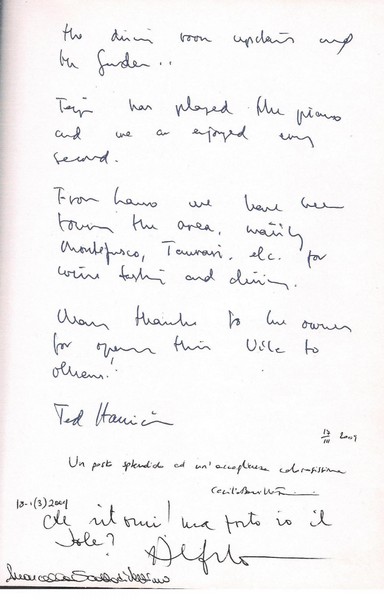 the dining room upstairs and
the garden..
has played the piano
and we all enjoyed every
second.
From here we have been
touring the area, mainly
Montefusco, Taurasi, etc. for
wine tasting and dining.
Many thanks to the owner
for opening this Villa to
others!
Ted
17
III 2009
Un posto splendido ed un'accoglienza calorosissima
che ritorni! ma porto io il
sole?